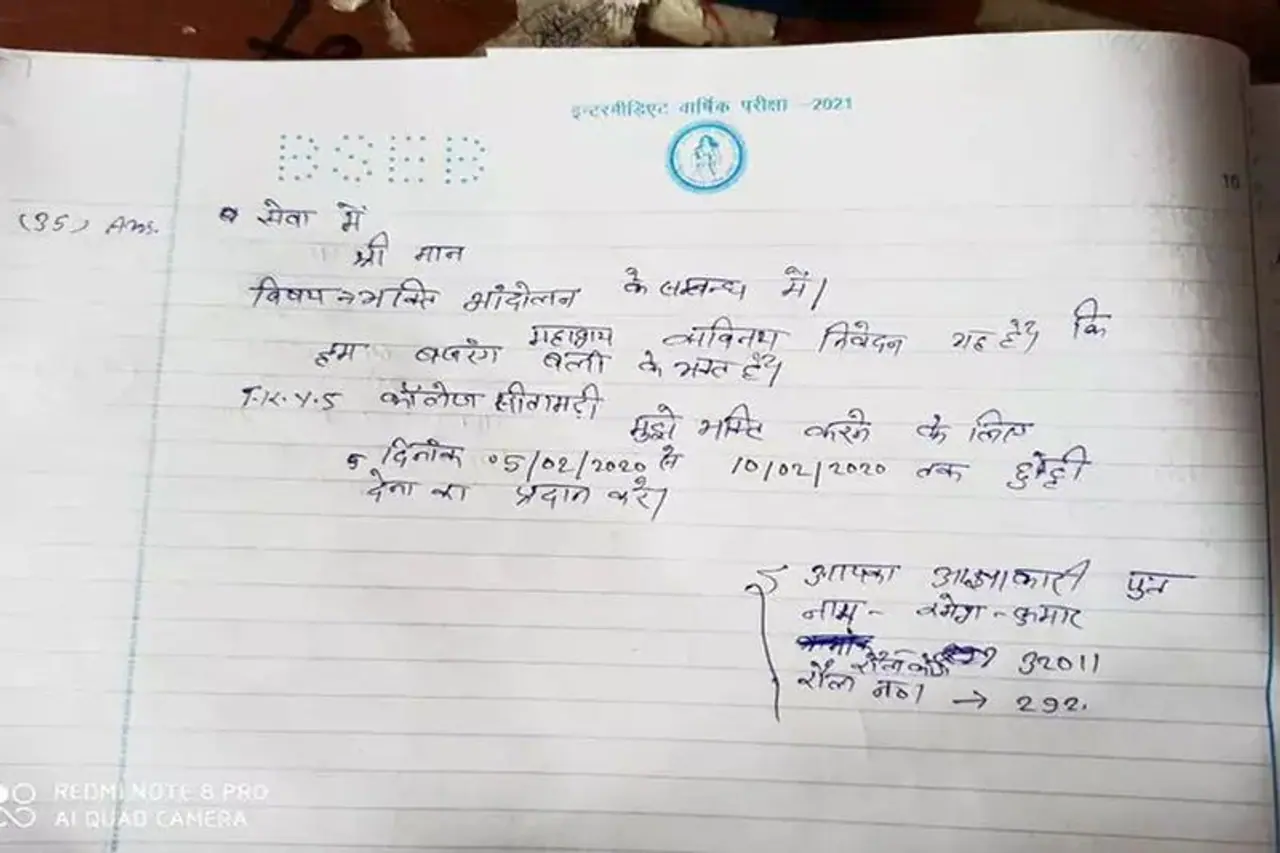 इन्टरमीडिएट वार्षिक परीक्षा -2021
BSEB
16
(35) Ans.
सेवा में
श्री मान
विषय → भक्ति आंदोलन के सम्बन्ध में।
महाशय सविनय निवेदन यह है कि
हम बजरंग बली के भक्त है
T.R.Y.S कॉलेज सीतामढ़ी
मुझे भक्ति करने के लिए
दिनांक 05/02/2020 से 10/02/2020 तक छुट्टी
देना का प्रदान करे।
आपका आज्ञाकारी पुत्र
नाम - कुमार
रौल कोड 32011
रौल न० → 292.
REDMI NOTE 8 PRO
AI QUAD CAMERA